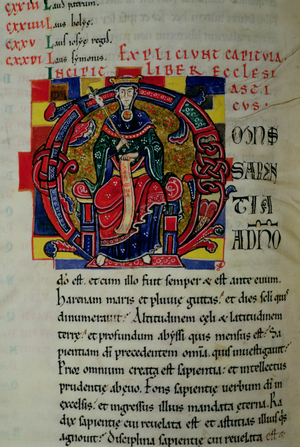 CXXIII Laus patrum.
CXXIIII Laus helye.
CXXV Laus iosye regis.
CXXVI Laus symonis. EXPLICIUNT CAPITULA
INCIPIT LIBER ECCLESI
ASTI
CVS.
OMNS
SAPIEN
TIA
A DNO
dō est. et cum illo fuit semper & est ante euum.
Harenam maris et pluuie guttas. et dies seli quis
dinumerauit? Altitudinem celi & latitudinem
terre. et profundum abyssi quis mensus est? Sa
pientiam di precedentem omia. quis inuestigauit?
Prior omnium creata est sapientia. et intellectus
prudentie ab euo. Fons sapientie uerbum di in
excelsis. et ingressus illius mandata eterna. Ra
dix sapientie cui reuelata est. et astutias illius quis
agnouit? Disciplina sapientie cui reuelata est &